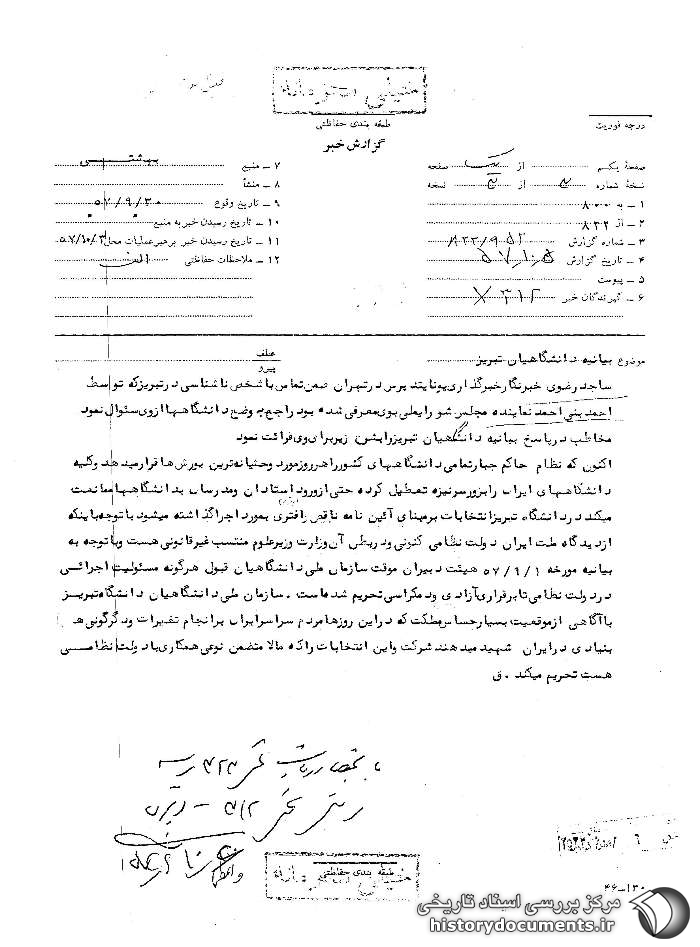 خیلی محرمانه
طبقه بندی حفاظتی
گزارش خبر
درجه فوریت
صفحهٔ یکم از یک صفحه
نسخهٔ شماره از نسخه
۱ ـ به ۸۰۰۰
۲ ـ از ۸۳۲
۳ ـ شماره گزارش
۴ ـ تاریخ گزارش
۵ ـ پیوست
۶ ـ گیرندگان خبر ۳۱۲
۷ ـ منبع بهشتی
۸ ـ منشأ
۹ ـ تاریخ وقوع ۵۷/۹/۳۰
۱۰ ـ تاریخ رسیدن خبر به منبع
۱۱ ـ تاریخ رسیدن خبر برهبر عملیات محل ۵۷/۱۰/۳
۱۲ ـ ملاحظات حفاظتی الف
موضوع بیانیه دانشگاهیان تبریز
عطف
پیرو
ساجد رضوی خبرنگار خبرگذاری یونایتد پرس در تهران ضمن تماس با شخص ناشناسی در تبریز که توسط
احمد بنی احمد نماینده مجلس شورایملی بوی معرفی شده بود راجع به وضع دانشگاهها از وی سئوال نمود
مخاطب در پاسخ بیانیه دانشگاهیان تبریز را بشرح زیر برای وی قرائت نمود
اکنون که نظام حاکم جبار تمامی دانشگاههای کشور را هر روز مورد وحشیانه‌ترین یورش‌ها قرار میدهد و کلیه
دانشگاههای ایران را بزور سرنیزه تعطیل کرده حتی از ورود استادان و مدرسان بدانشگاهها ممانعت
میکند در دانشگاه تبریز انتخابات بر مبنای آئین نامه ناقص بمورد اجرا گذاشته میشود با توجه باینکه
از دیدگاه ملت ایران دولت نظامی کنونی و در بطن آن وزارت و وزیر علوم منتسب غیرقانونی هست و با توجه به
بیانیه مورخه ۵۷/۹/۱ هیئت دبیران موقت سازمان ملی دانشگاهیان قبول هرگونه مسئولیت اجرائی
در دولت نظامی تا برقراری آزادی و دمکراسی تحریم شده است . سازمان ملی دانشگاهیان دانشگاه تبریز
با آگاهی از موقعیت بسیار حساس مملکت که در این روزها مردم سراسر ایران برانجام تغییرات و دگرگونی‌ها
بنیادی در ایران شهید میدهند شرکت و این انتخابات را که مالا متضمن نوعی همکاری با دولت نظامی
هست تحریم میکند . ق
طبقه بندی حفاظتی
خیلی محرمانه
۴۶ـ۱۳۰
مرکز بررسی اسناد تاریخی
historydocuments.ir